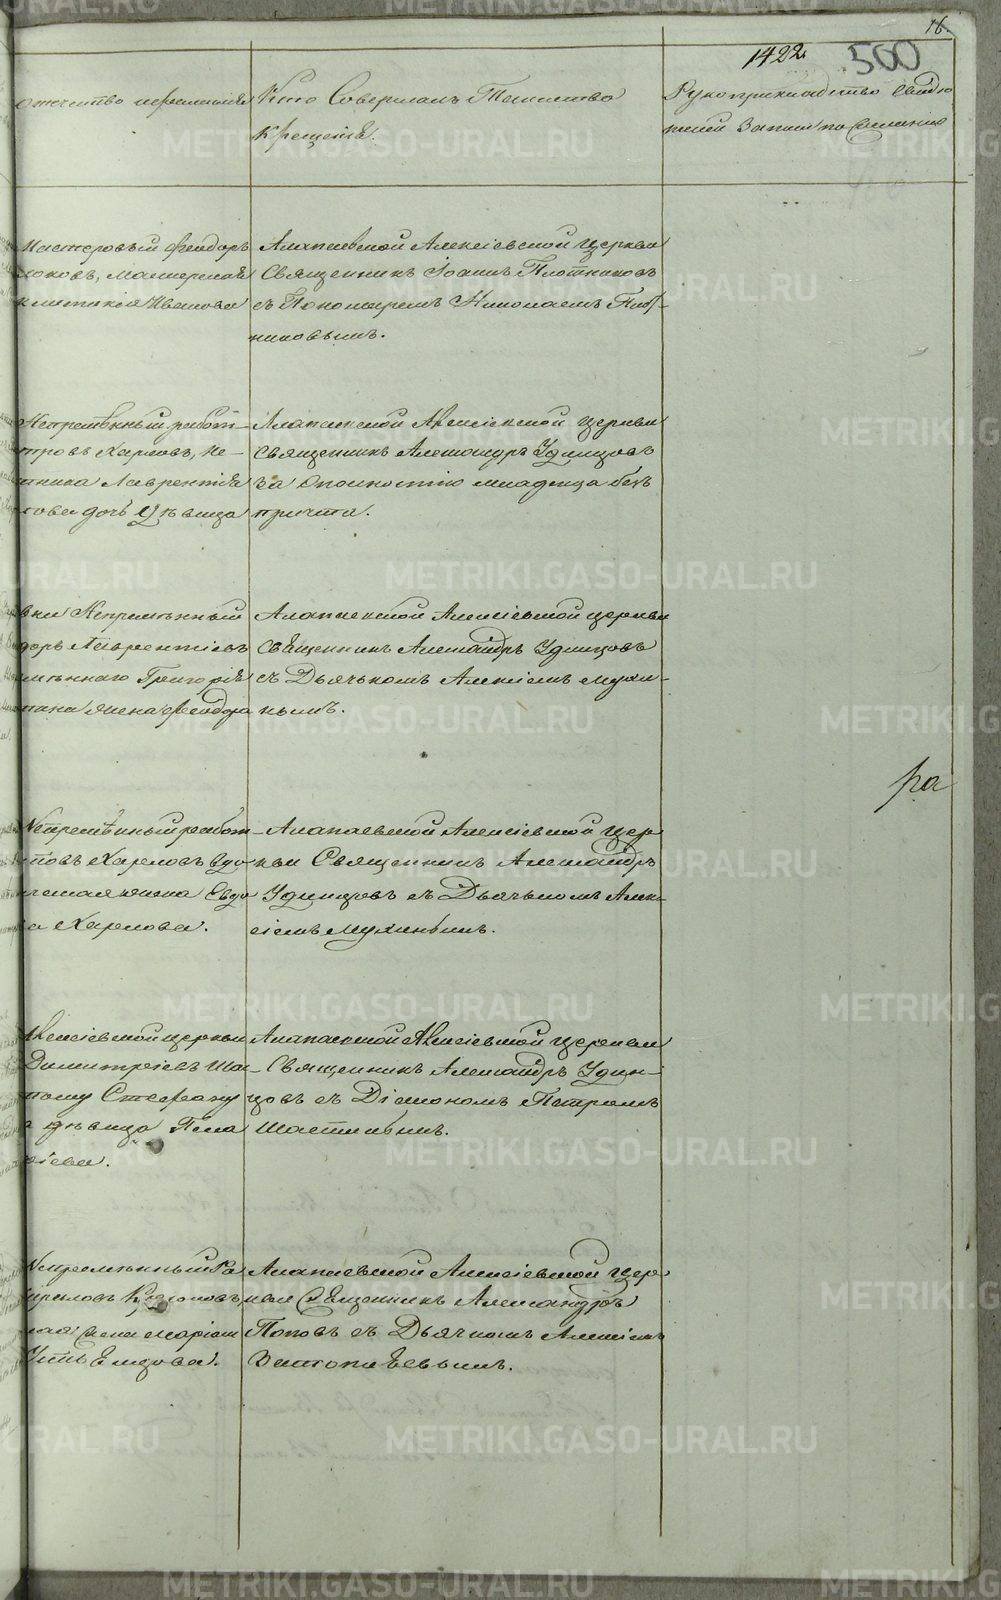 16.
1422. 500
отечество и фамилія
Кто Совершалъ Таинство
Крещенія.
Рукоприкладство свидѣ
телей Записи по желанію
Мастеровый Феодоръ
Иванова
Алапаевской Алексіевской Церкви
Священникъ Іоаннъ Плотниковъ
съ Пономаремъ Николаемъ Плот-
никовымъ.
Непремѣнный работ-
тровъ Харловъ, Не-
тника Лаврентія
това дочь Дѣвица
Алапаевской Алексіевской Церкви
Священникъ Александръ Удинцовъ
за опасностію младенца безъ
причта.
вки Непремѣнный
доръ Лаврентіевъ
мѣннаго Григорія
жена Феодора
Алапаевской Алексіевской церкви
Священникъ Александръ Удинцовъ
съ Дьячькомъ Алексіемъ Мухи-
нымъ.
Непремѣнный работ-
повъ Харловъ вдо
жена Евдо
а Харлова.
Алапаевской Алексіевской Цер
кви Священникъ Александръ
Удинцовъ съ Дьячькомъ Алек-
сіемъ Мухинымъ.
Алексіевской церкви
Димитріевъ
тому Стефану
дѣвица Пела
сіева.
Алапаевской Алексіевской Церкви
Священникъ Александръ Удин-
цовъ съ Діакономъ Петромъ
Шастинымъ.
Непремѣнный Ра
жена Маріам
Алапаевской Алексіевской Цер
кви Священникъ Александръ
Поповъ съ Дьячкомъ Алексіемъ
METRIKI.GASO-URAL.RU